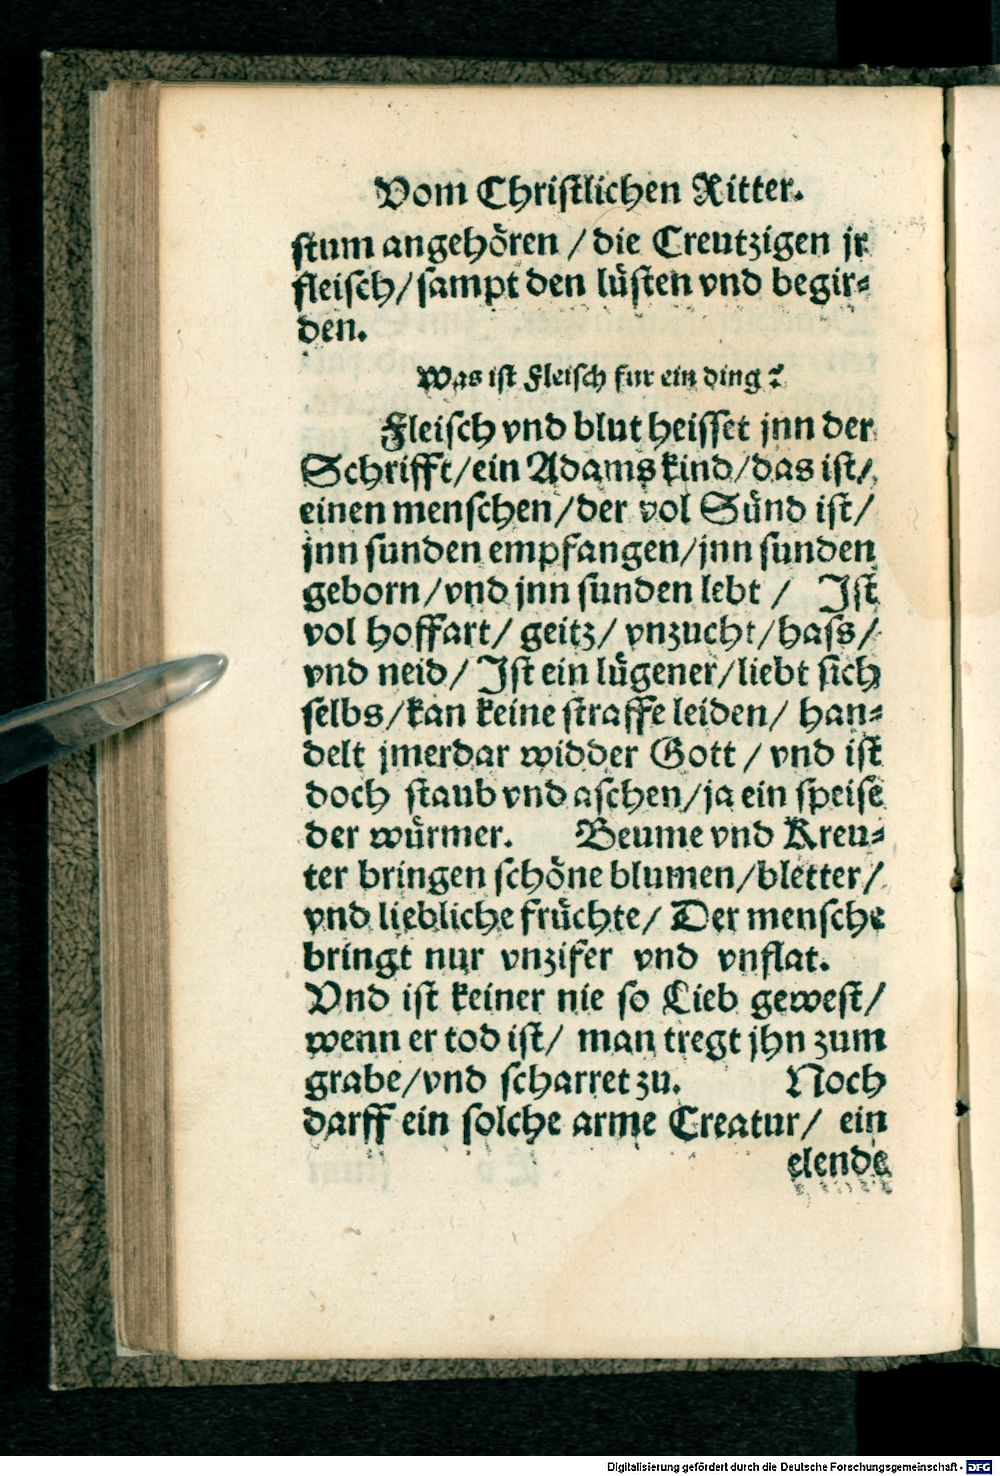 Vom Christlichen Ritter.
stum angehören / die Creutzigen jr
fleisch / sampt den lüsten vnd begir⸗
den.
Was ist Fleisch fur ein ding?
Fleisch vnd blut heisset jnn der
Schrifft / ein Adams kind / das ist /
einen menschen / der vol Sünd ist /
jnn sunden empfangen / jnn sunden
geborn / vnd jnn sunden lebt / Ist
vol hoffart / geitz / vnzucht / hass /
vnd neid / Ist ein lügener / liebt sich
selbs / kan keine straffe leiden / han⸗
delt jmerdar widder Gott / vnd ist
doch staub vnd aschen / ja ein speise
der würmer. Beume vnd Kreu⸗
ter bringen schöne blumen / bletter /
vnd liebliche früchte / Der mensche
bringt nur vnzifer vnd vnflat.
Vnd ist keiner nie so Lieb gewest /
wenn er tod ist / man tregt jhn zum
grabe / vnd scharret zu. Noch
darff ein solche arme Creatur / ein
elende
Digitalisierung gefördert durch die Deutsche Forschungsgemeinschaft - DFG